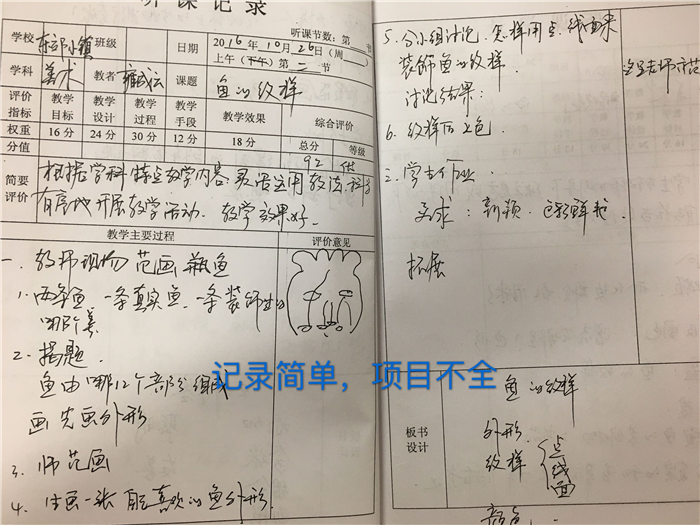 听课记录
学校 东部小镇 班级 日期 2016年10月26日(周 )
听课节数:第 节
上午(下午)第二节
学科 美术 教者 课题 鱼的纹样
评价指标 教学目标 教学设计 教学过程 教学手段 教学效果 综合评价
权重 16分 24分 30分 12分 18分 总分 等级
分值 92 优
简要评价 根据学科特定教学内容灵活运用教法,
有序地开展教学活动.教学效果好.
教学主要过程 评价意见
一.教师现场范画
1.两条鱼,一条真实鱼,一条装饰鱼
哪个美
2.揭题.
鱼由哪几个部分组成
画先画外形
3.师范画
4.生画一张自己喜欢的鱼外形.
5.分小组讨论,怎样用点.线面来
装饰鱼的纹样.
讨论结果:
6.纹样后上色.
三.学生作业.
要求:新颖.色彩鲜艳.
拓展
板书设计
鱼的纹样
外形.
纹样 点 线 面
颜色
记录简单,项目不全